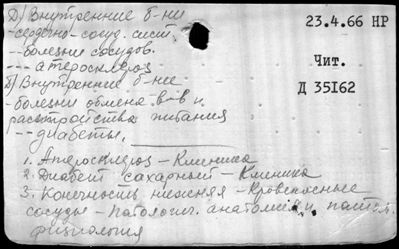 Д) Внутренние б-ни
-сердечно-сосуд. сист.
--болезни сосудов.
---атеросклероз
Б) Внутренние б-ние
-болезни обмена в-в и
расстройства питания
--диабеты.
1. Атеросклероз - Клиника
2. Диабет сахарный - Клиника
3. Конечность нижняя - Кровеносные
сосуды - патологич. анатомия и патол.
физиология
23.4.66 НР
Чит.
Д 35162